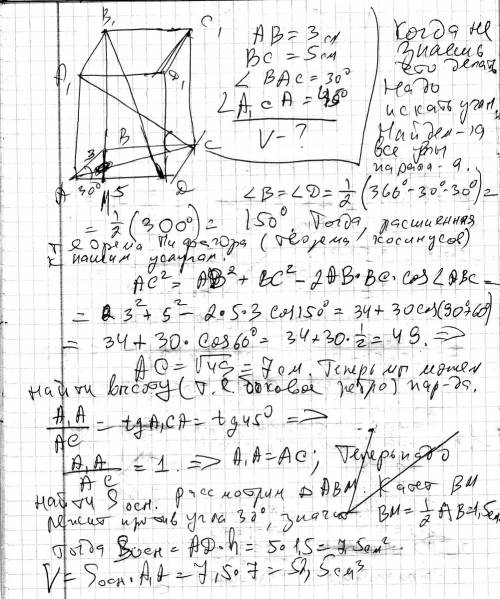 B₁
C₁
A₁
D₁
B
C
A
D
M
3
30°
5
AB = 3 см
BC = 5 см
∠ BAC = 30°
∠ A₁CA = 45°
V - ?
Когда не
знаешь
что делать
Надо
искать углы,
Найдем
все углы
∠B = ∠D = 1/2 (360° - 30° - 30°) =
= 1/2 (300°) = 150°. Тогда, расширенная
теорема Пифагора (теорема косинусов)
к нашим услугам.
AC² = AB² + BC² - 2AB·BC·cos∠ABC =
= 3² + 5² - 2·5·3 cos150° = 34 + 30 cos(90°60°)
= 34 + 30·cos60° = 34 + 30·1/2 = 49. =>
AC = √49 = 7 см. Теперь мы можем
найти высоту (т.е боковое ребро) пар-да.
A₁A/AC = tg A₁CA = tg45° =>
A₁A/AC = 1. => A₁A = AC; Теперь надо
найти Sосн. Рассмотрим Δ ABM. Катет BM
лежит против угла 30°, значит BM = 1/2 AB = 1,5см
Тогда Sосн = AD·h = 5·1,5 = 7,5см²
V = Sосн·A₁A = 7,5·7 = 52,5см³